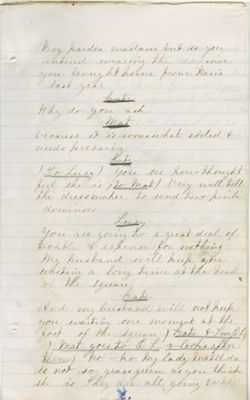 Beg pardon madam but do you
intend wearing the domino
you brought home from Paris
last year
Kate
Why do you ask
Mat
because it is somewhat soiled &
needs pressing
Kate
(To Lucy) You see how thought
ful she is (to Mat) Very well tell
the dressmaker to send two pink
dominoes
Lucy
You are going to a great deal of
trouble & expense for nothing
My husband will keep me
waiting a long time at the head
of the square
Kate
And my husband will not keep
you waiting one moment at the
foot of the square (Kate & Lucy
) Mat goes to
them) No - ho My lady Matilda
is not so grass green as you think
she is They are all going to the